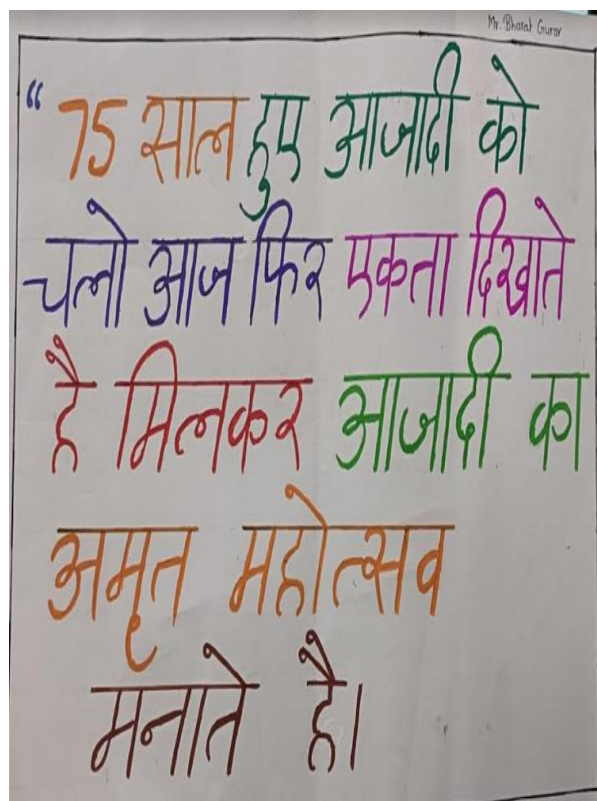 Mr. Bharat Gurav
“ 75 साल हुए आजादी को
चलो आज फिर एकता दिखाते
है मिलकर आजादी का
अमृत महोत्सव
मनाते है।